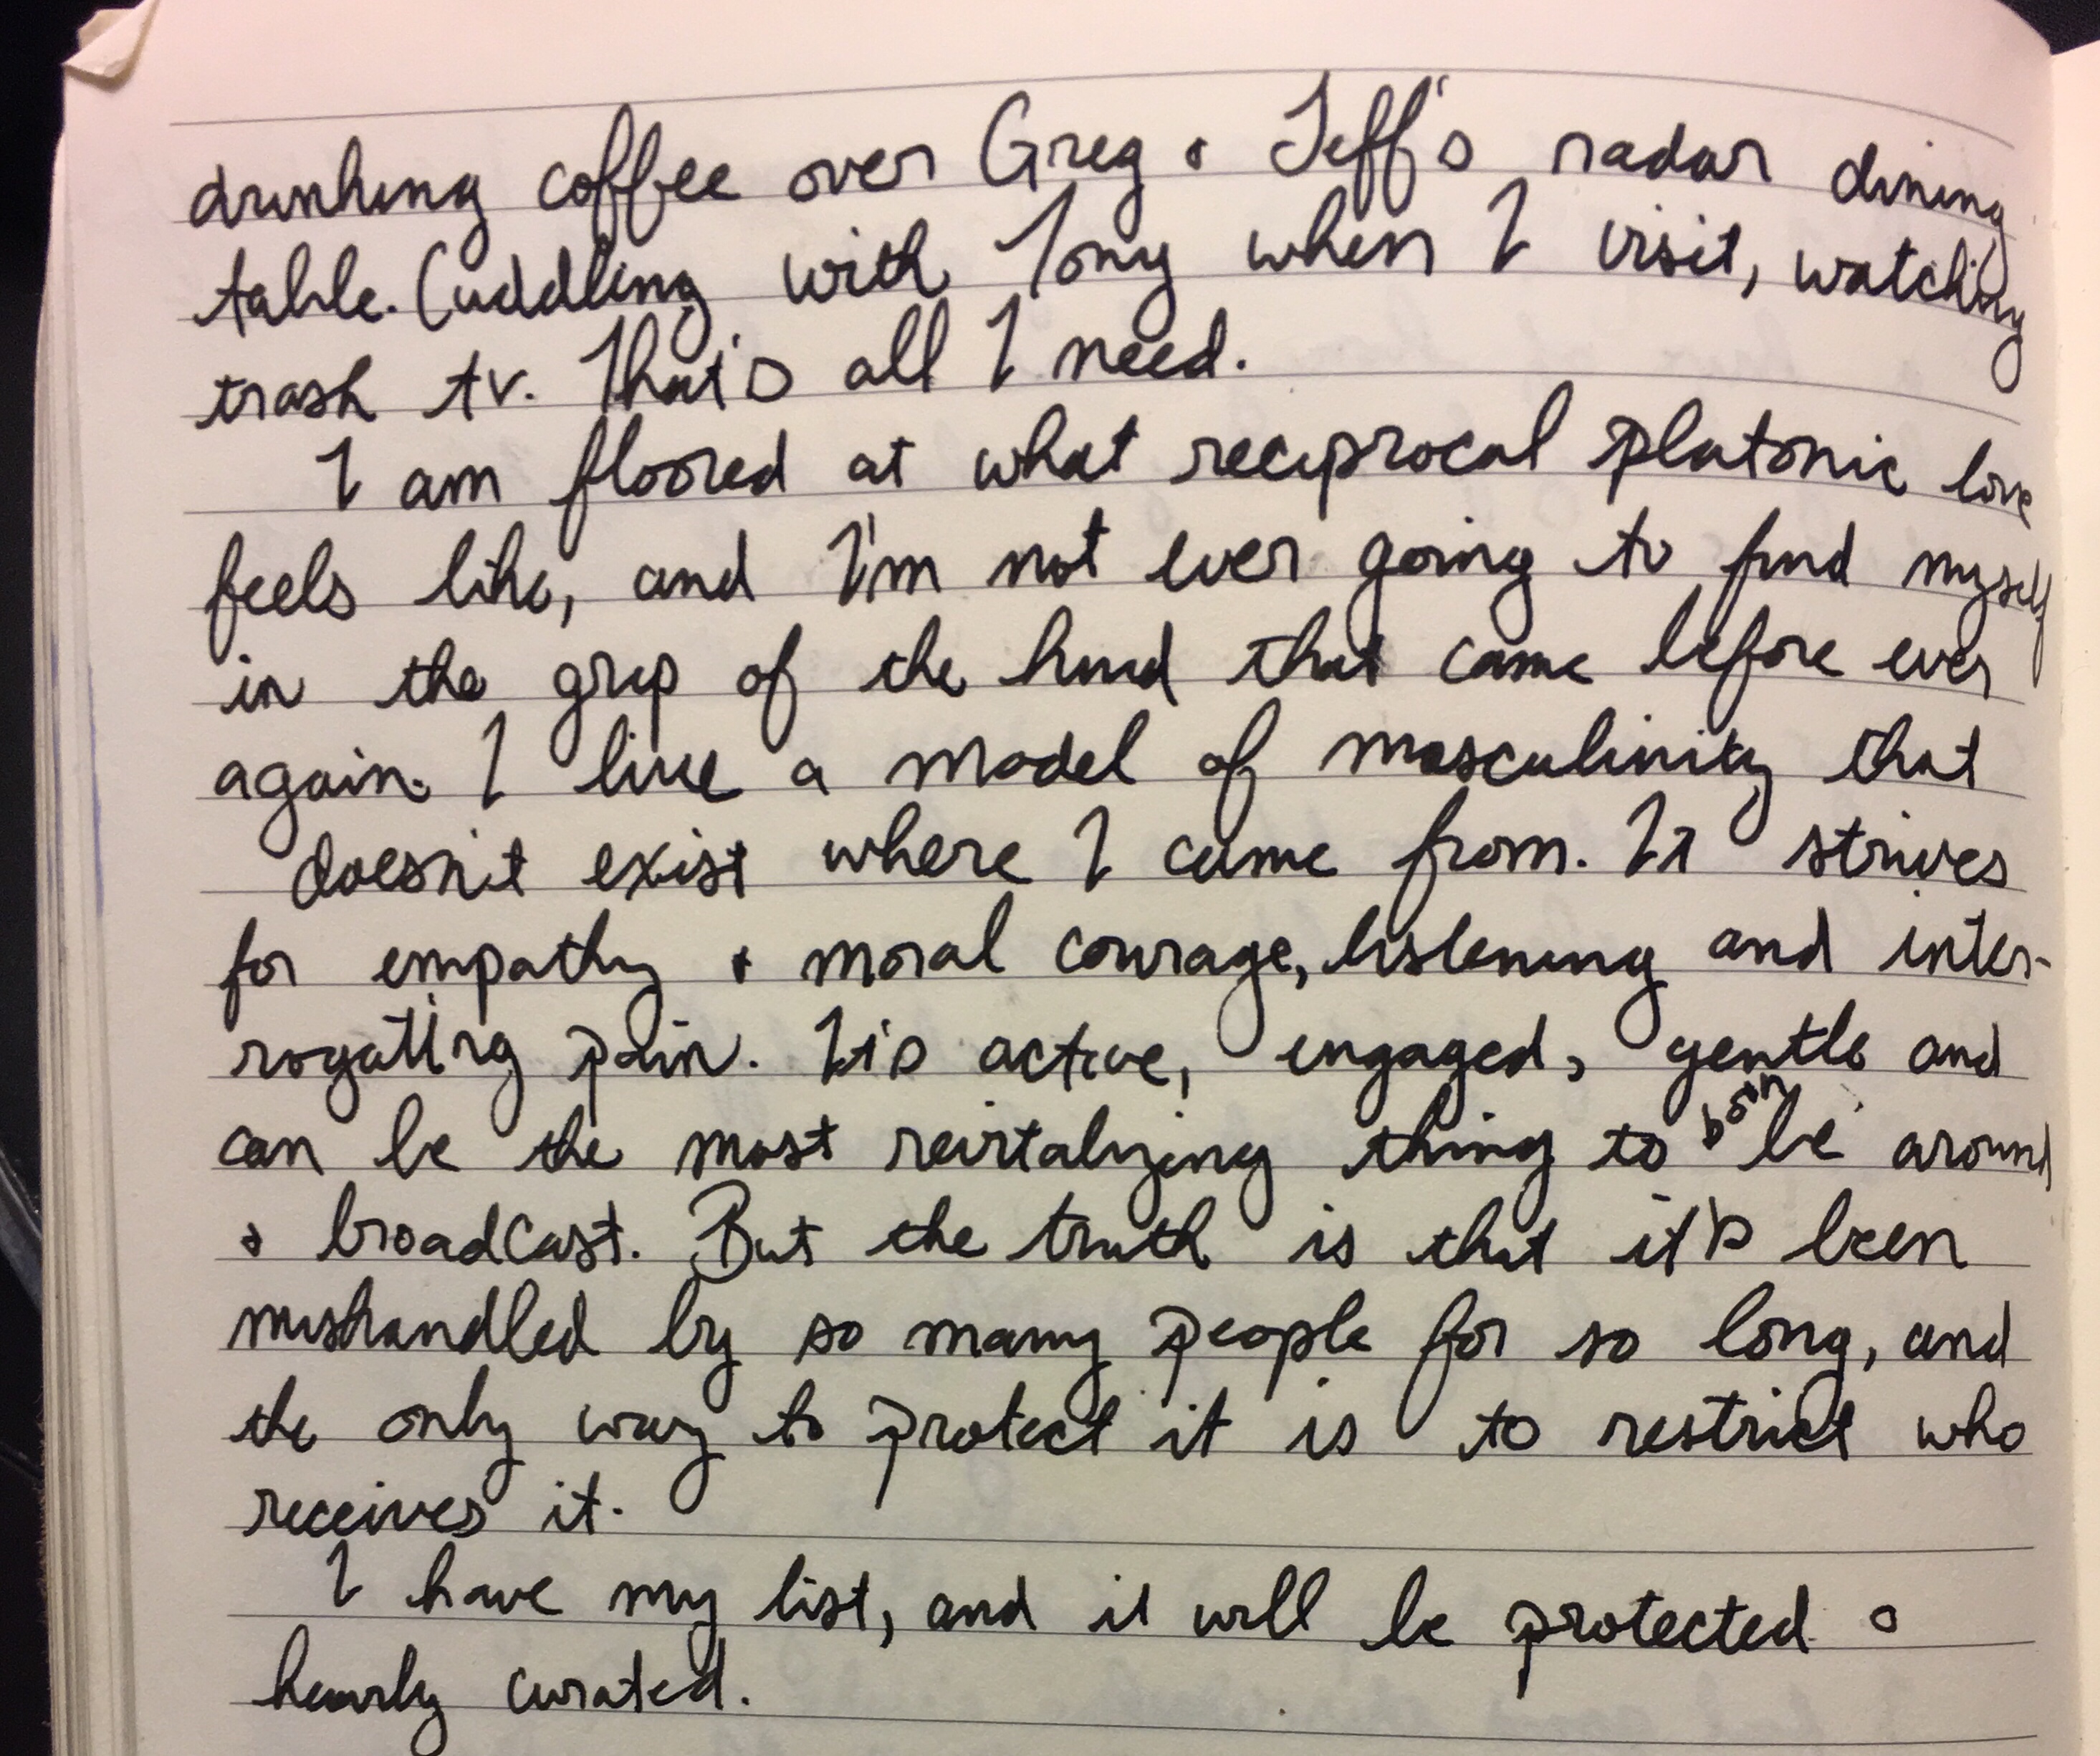 drinking coffee over Greg + Jeff's radar dining
table. Cuddling with Tony when I visit, watching
trash tv. That's all I need.
I am floored at what reciprocal platonic love
feels like, and I'm not ever going to find myself
in the grip of the kind that came before ever
again. I live a model of masculinity that
doesn't exist where I came from. It strives
for empathy + moral courage, listening and inter-
rogating pain. It's active, engaged, gentle and
can be the most revitalizing thing to both be around
+ broadcast. But the truth is that it's been
mishandled by so many people for so long, and
the only way to protect it is to restrict who
receives it.
I have my list, and it will be protected +
heavily curated.